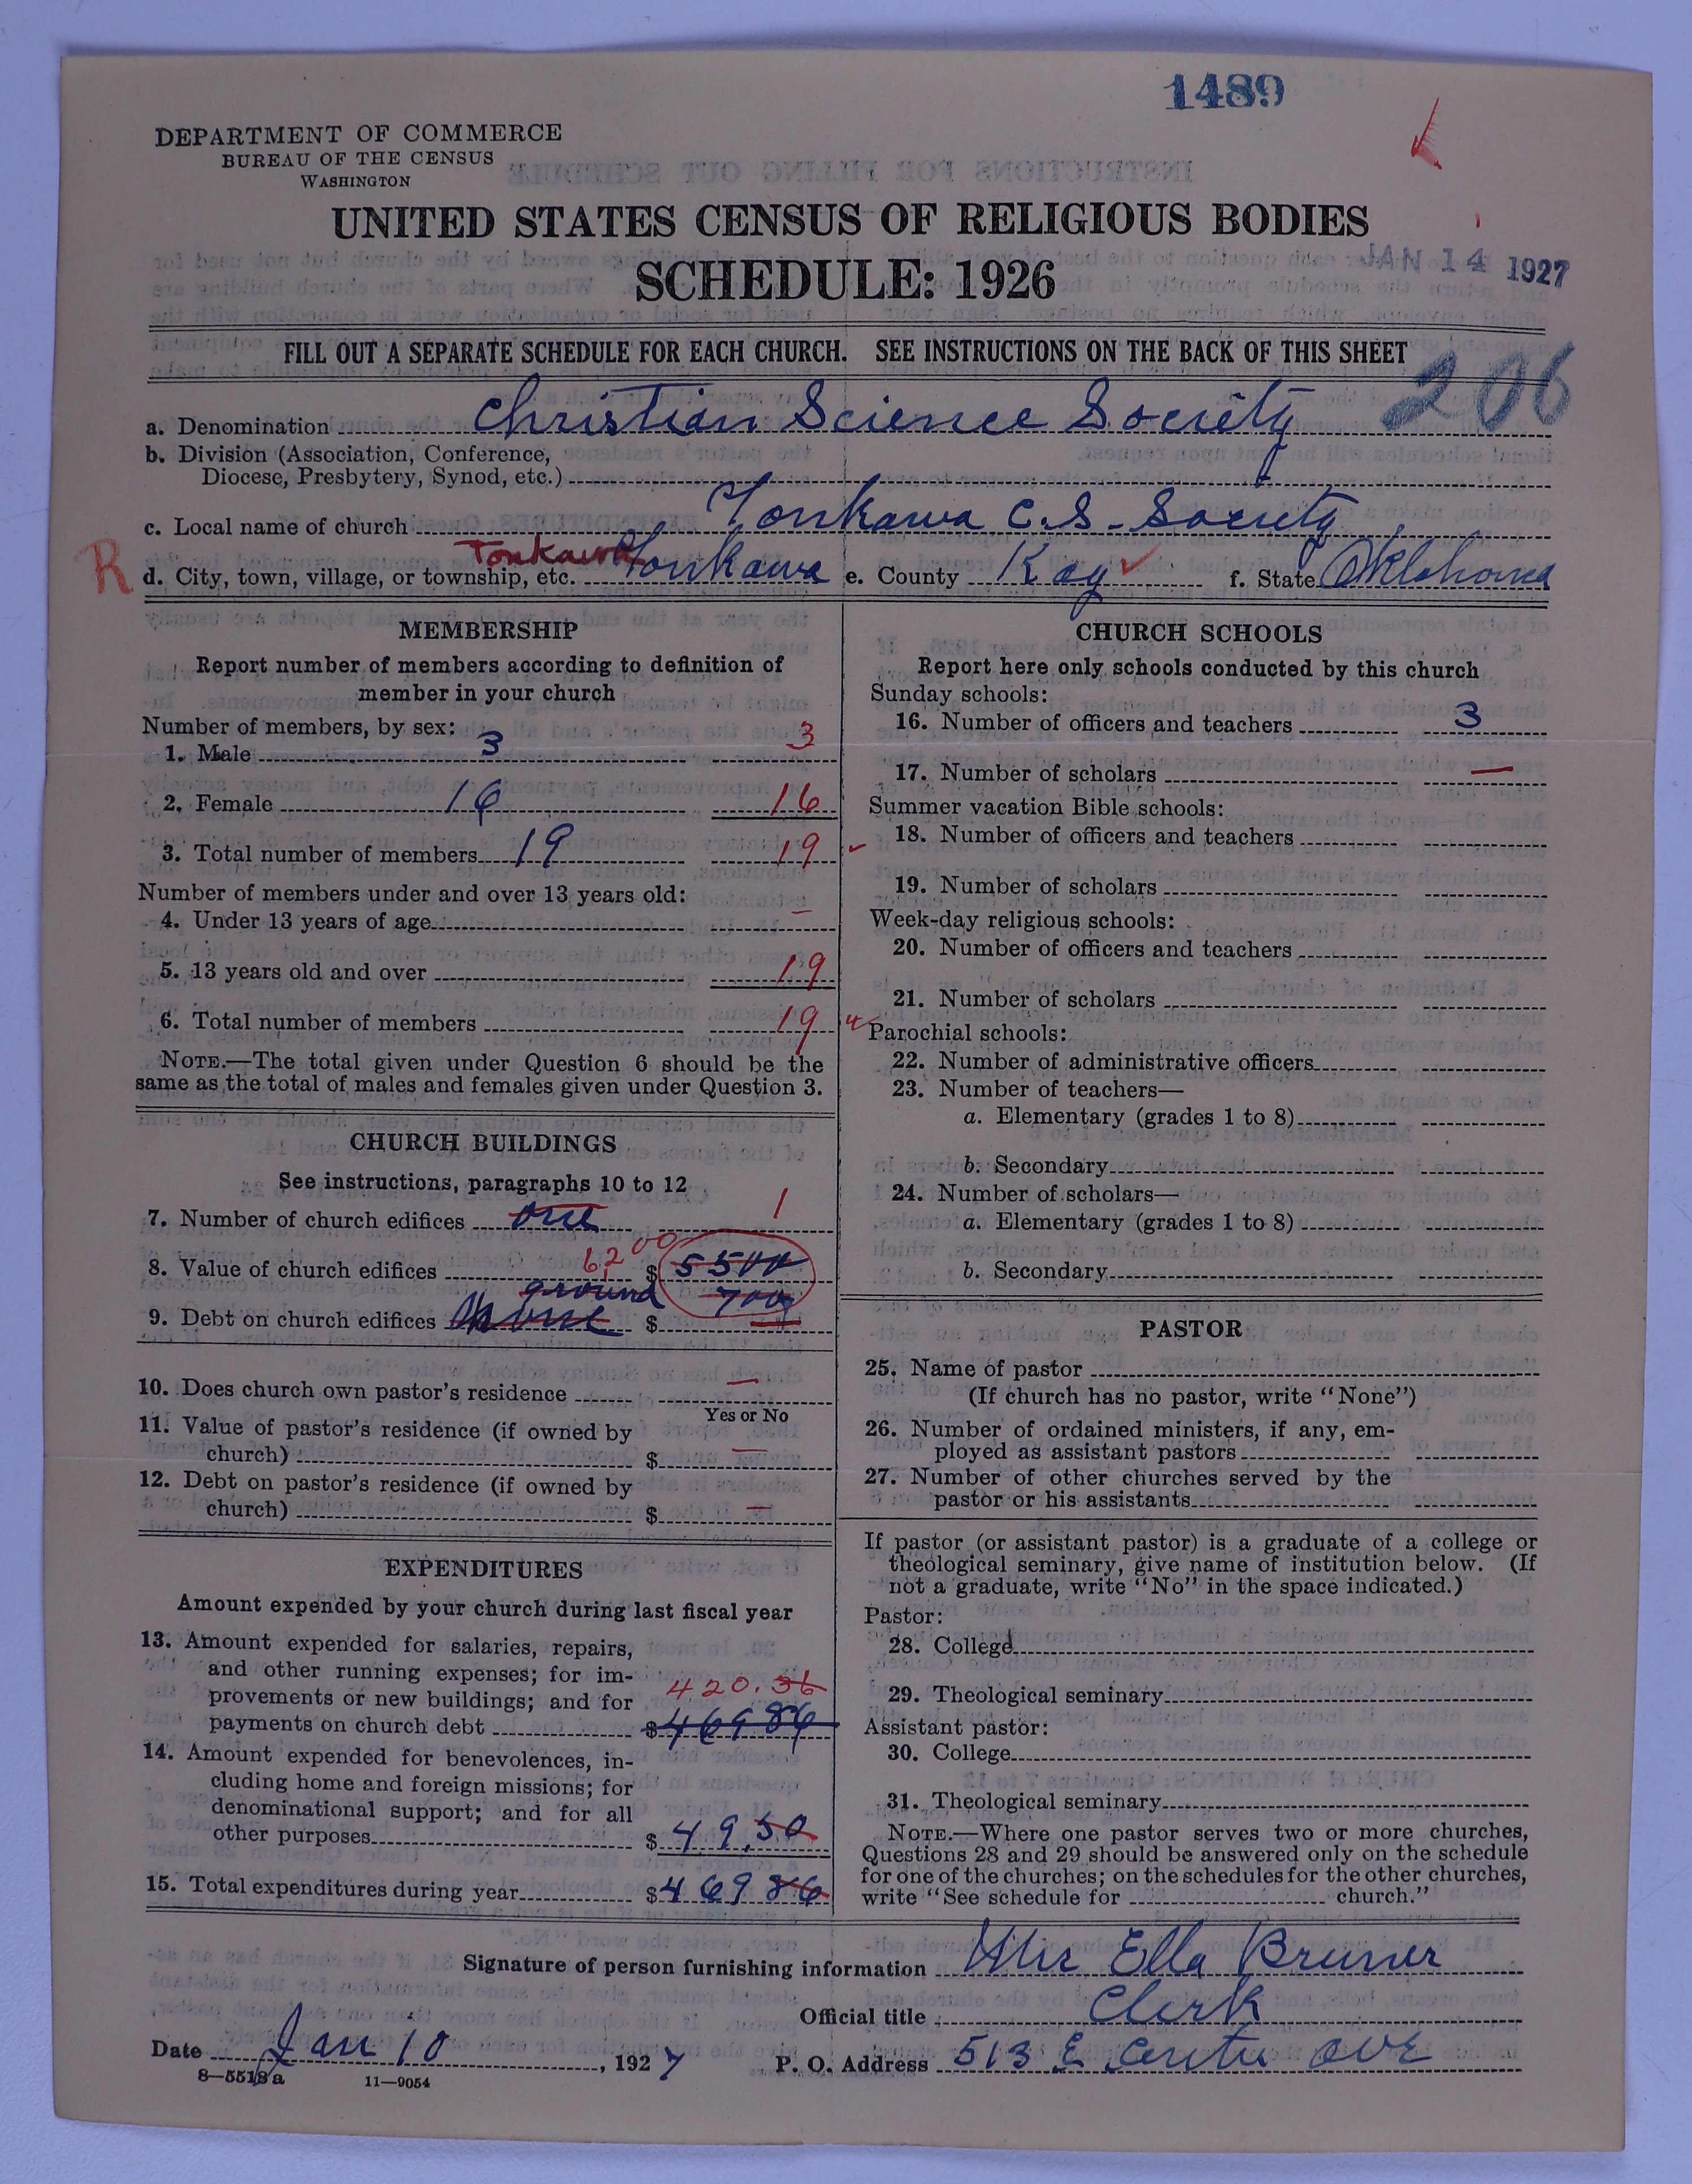 1489
DEPARTMENT OF COMMERCE
BUREAU OF THE CENSUS
WASHINGTON
UNITED STATES CENSUS OF RELIGIOUS BODIES
SCHEDULE: 1926
JAN 14 1927
FILL OUT A SEPARATE SCHEDULE FOR EACH CHURCH. SEE INSTRUCTIONS ON THE BACK OF THIS SHEET
206
a. Denomination Christian Science Society
b. Division (Association, Conference,
Diocese, Presbytery, Synod, etc.)
c. Local name of church Tonkawa C.S. Society
R
Tonkawa
d. City, town, village, or township, etc. Tonkawa e. County Kay f. State Oklahoma
MEMBERSHIP
Report number of members according to definition of
member in your church
Number of members, by sex:
1. Male 3 3
2. Female 16 16
3. Total number of members 19 19
Number of members under and over 13 years old:
4. Under 13 years of age –
5. 13 years old and over 19
6. Total number of members 19
NOTE.—The total given under Question 6 should be the
same as the total of males and females given under Question 3.
CHURCH BUILDINGS
See instructions, paragraphs 10 to 12
7. Number of church edifices one 1
6200
8. Value of church edifices $ 5500
ground 700
9. Debt on church edifices None $ –
10. Does church own pastor's residence –
Yes or No
11. Value of pastor's residence (if owned by
church) $ –
12. Debt on pastor's residence (if owned by
church) $ –
EXPENDITURES
Amount expended by your church during last fiscal year
13. Amount expended for salaries, repairs,
and other running expenses; for im-
provements or new buildings; and for 420.36
payments on church debt $ 469 86
14. Amount expended for benevolences, in-
cluding home and foreign missions; for
denominational support; and for all
other purposes $ 49.50
15. Total expenditures during year $ 469 86
CHURCH SCHOOLS
Report here only schools conducted by this church
Sunday schools:
16. Number of officers and teachers 3
17. Number of scholars –
Summer vacation Bible schools:
18. Number of officers and teachers
19. Number of scholars
Week-day religious schools:
20. Number of officers and teachers
21. Number of scholars
Parochial schools:
22. Number of administrative officers
23. Number of teachers—
a. Elementary (grades 1 to 8)
b. Secondary
24. Number of scholars—
a. Elementary (grades 1 to 8)
b. Secondary
PASTOR
25. Name of pastor
(If church has no pastor, write "None")
26. Number of ordained ministers, if any, em-
ployed as assistant pastors
27. Number of other churches served by the
pastor or his assistants
If pastor (or assistant pastor) is a graduate of a college or
theological seminary, give name of institution below. (If
not a graduate, write "No" in the space indicated.)
Pastor:
28. College
29. Theological seminary
Assistant pastor:
30. College
31. Theological seminary
NOTE.—Where one pastor serves two or more churches,
Questions 28 and 29 should be answered only on the schedule
for one of the churches; on the schedules for the other churches,
write "See schedule for church."
Signature of person furnishing information Mrs Ella Bruner
Official title Clerk
Date Jan 10, 1927 P. O. Address 513 E Centre Ave
8—5518a 11—9054